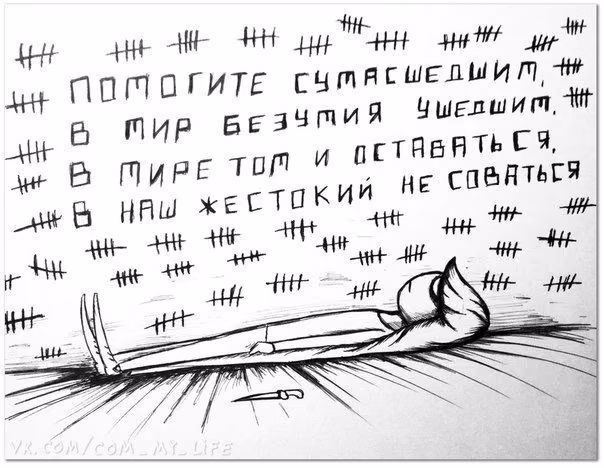 ПОМОГИТЕ СУМАСШЕДШИМ,
В МИР БЕЗУМИЯ УШЕДШИМ,
В МИРЕ ТОМ И ОСТАВАТЬСЯ,
В НАШ ЖЕСТОКИЙ НЕ СОВАТЬСЯ
VK.COM/COM_MY_LIFE